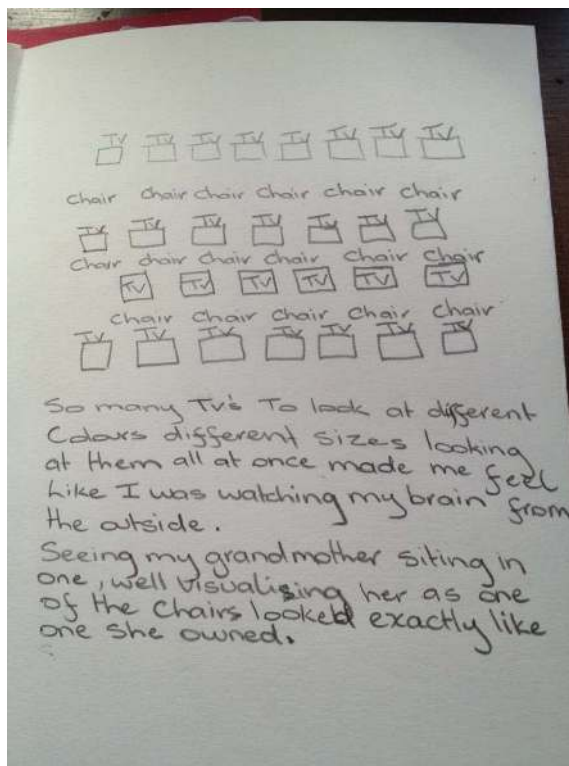 TV TV TV TV TV TV TV TV
Chair Chair chair Chair chair Chair
TV TV TV TV TV TV TV
Chair chair Chair Chair Chair Chair
TV TV TV TV TV TV
Chair Chair Chair Chair Chair
TV TV TV TV TV TV TV
So many TV's To look at different
Colours different sizes looking
at them all at once made me feel
Like I was watching my brain from
the outside.
Seeing my grandmother siting in
one, well visualising her as one
of the Chairs looked exactly like
one she owned.